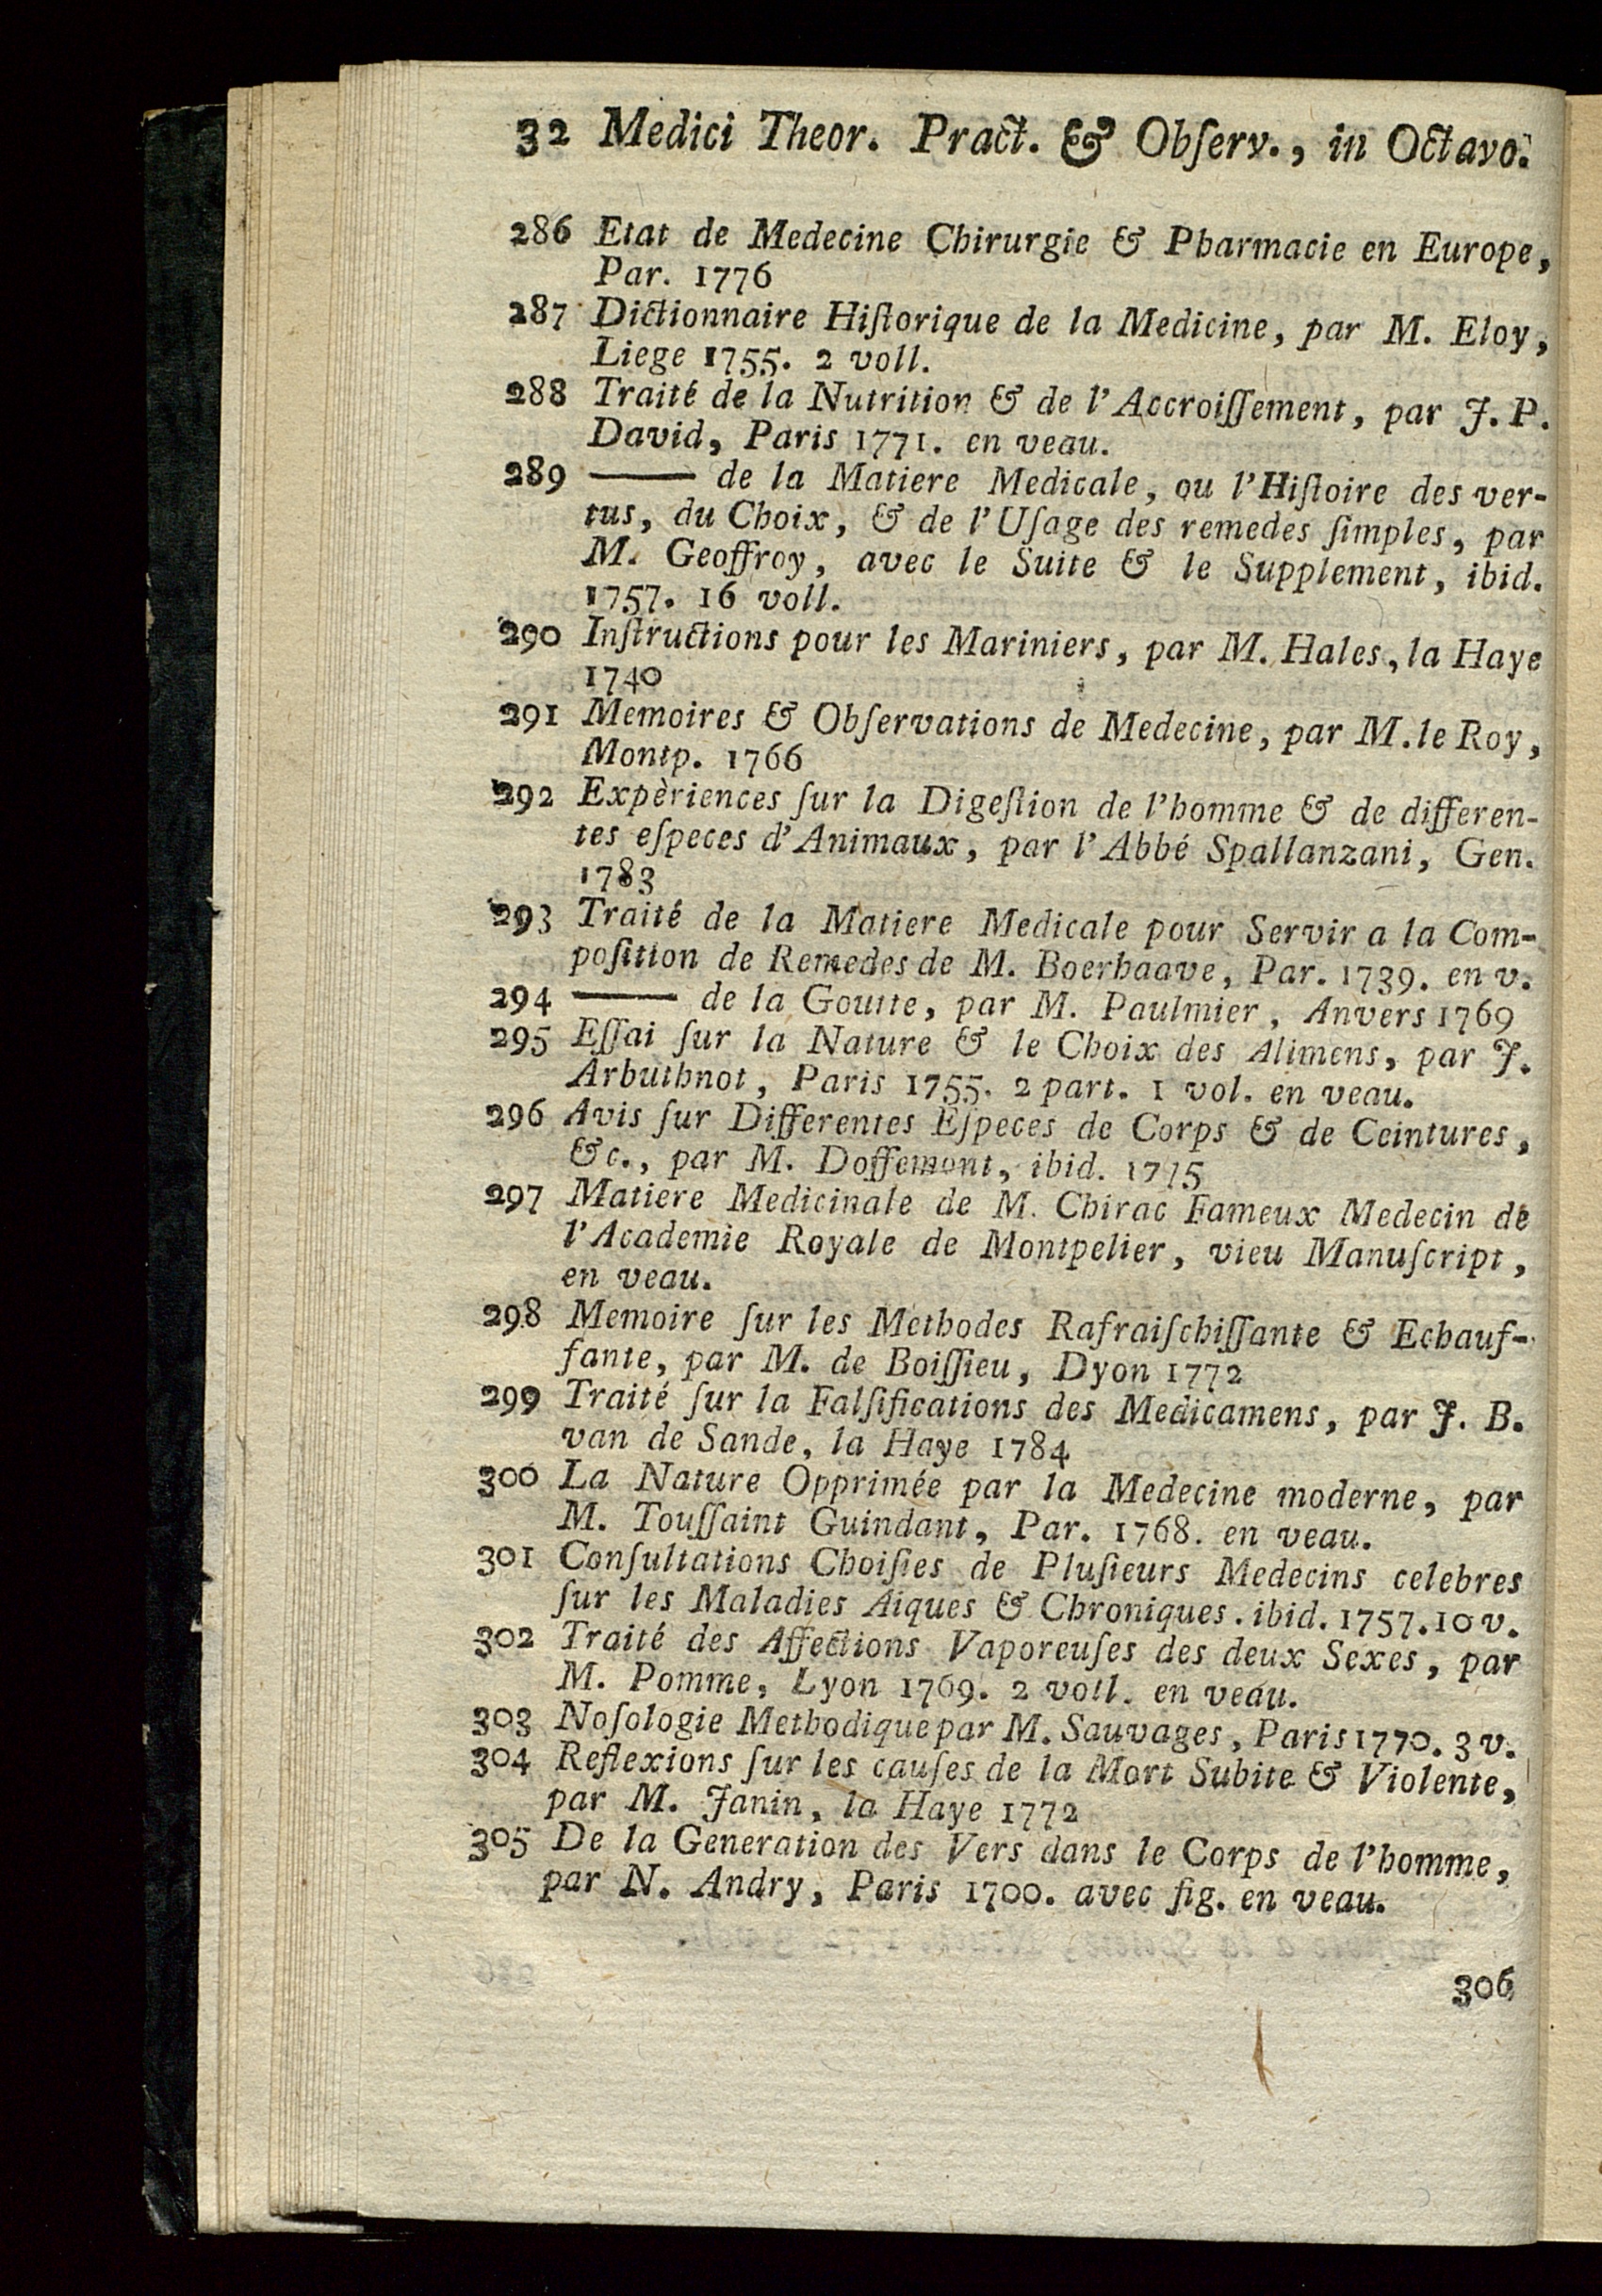 32 Medici Theor. Pract. & Obſerv., in Octavo.
286 Etat de Medecine Chirurgie & Pharmacie en Europe,
Par. 1776
287 Dictionnaire Hiſtorique de la Medicine, par M. Eloy,
Liege 1755. 2 voll.
288 Traité de la Nutrition & de l'Accroiſſement, par J. P.
David, Paris 1771. en veau.
289 —— de la Matiere Medicale, ou l'Hiſtoire des ver-
tus, du Choix, & de l'Uſage des remedes ſimples, par
M. Geoffroy, avec le Suite & le Supplement, ibid.
1757. 16 voll.
290 Inſtructions pour les Mariniers, par M. Hales, la Haye
1740
291 Memoires & Obſervations de Medecine, par M. le Roy,
Montp. 1766
292 Expèriences ſur la Digeſtion de l'homme & de differen-
tes eſpeces d'Animaux, par l'Abbé Spallanzani, Gen.
1783
293 Traité de la Matiere Medicale pour Servir a la Com-
poſition de Remedes de M. Boerhaave, Par. 1739. en v.
294 —— de la Goutte, par M. Paulmier, Anvers 1769
295 Eſſai ſur la Nature & le Choix des Alimens, par J.
Arbuthnot, Paris 1755. 2 part. 1 vol. en veau.
296 Avis ſur Differentes Eſpeces de Corps & de Ceintures,
&c., par M. Doffemont, ibid. 1775
297 Matiere Medicinale de M. Chirac Fameux Medecin de
l'Academie Royale de Montpelier, vieu Manuſcript,
en veau.
298 Memoire ſur les Methodes Rafraiſchiſſante & Echauf-
fante, par M. de Boiſſieu, Dyon 1772
299 Traité ſur la Falſifications des Medicamens, par J. B.
van de Sande, la Haye 1784
300 La Nature Opprimée par la Medecine moderne, par
M. Touſſaint Guindant, Par. 1768. en veau.
301 Conſultations Choiſies de Pluſieurs Medecins celebres
ſur les Maladies Aiques & Chroniques. ibid. 1757. 10 v.
302 Traité des Affections Vaporeuſes des deux Sexes, par
M. Pomme, Lyon 1769. 2 voll. en veau.
303 Noſologie Methodique par M. Sauvages, Paris 1770. 3 v.
304 Reflexions ſur les cauſes de la Mort Subite & Violente,
par M. Janin, la Haye 1772
305 De la Generation des Vers dans le Corps de l'homme,
par N. Andry, Paris 1700. avec fig. en veau.
306